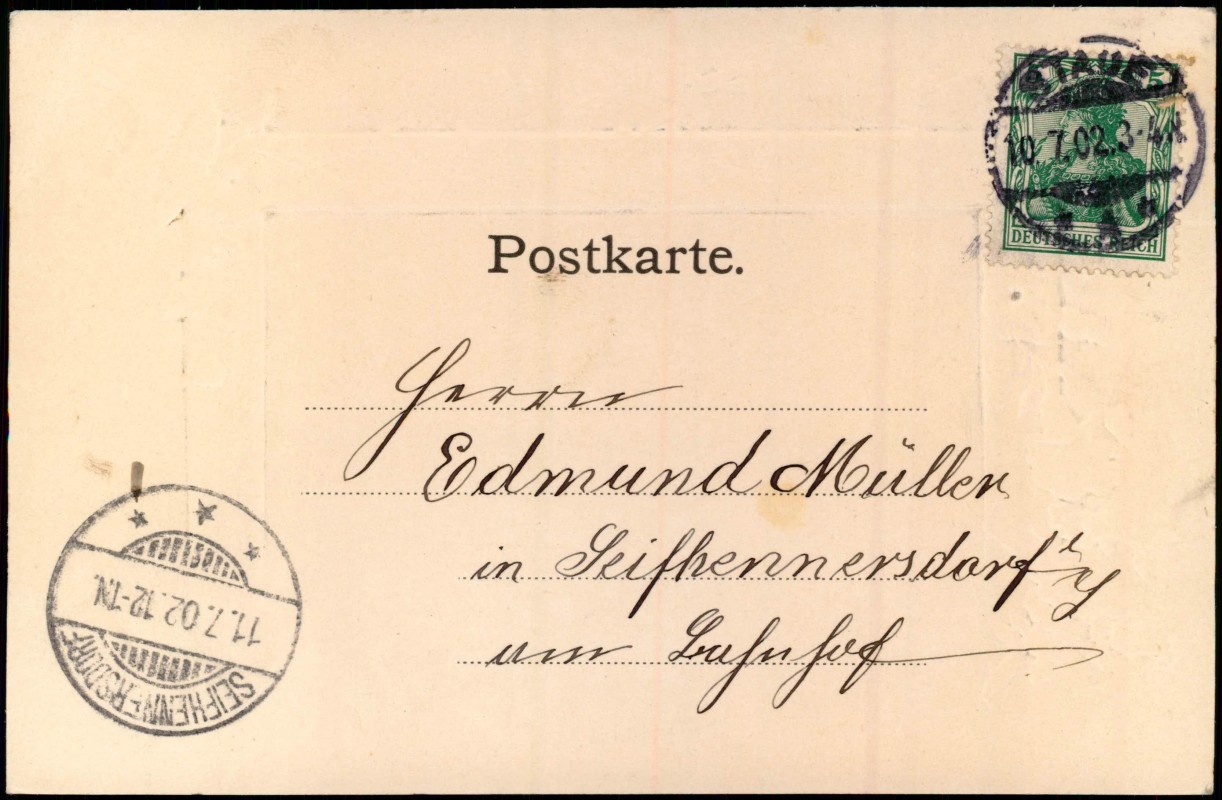 STADE
10.7.02.3-4N
* A *
5
DEUTSCHES REICH
Postkarte.
Herrn
Edmund Müller
in Seifhennersdorf i/
am Bahnhof
11.7.02.12-1N.
SEIFHENNERSDORF